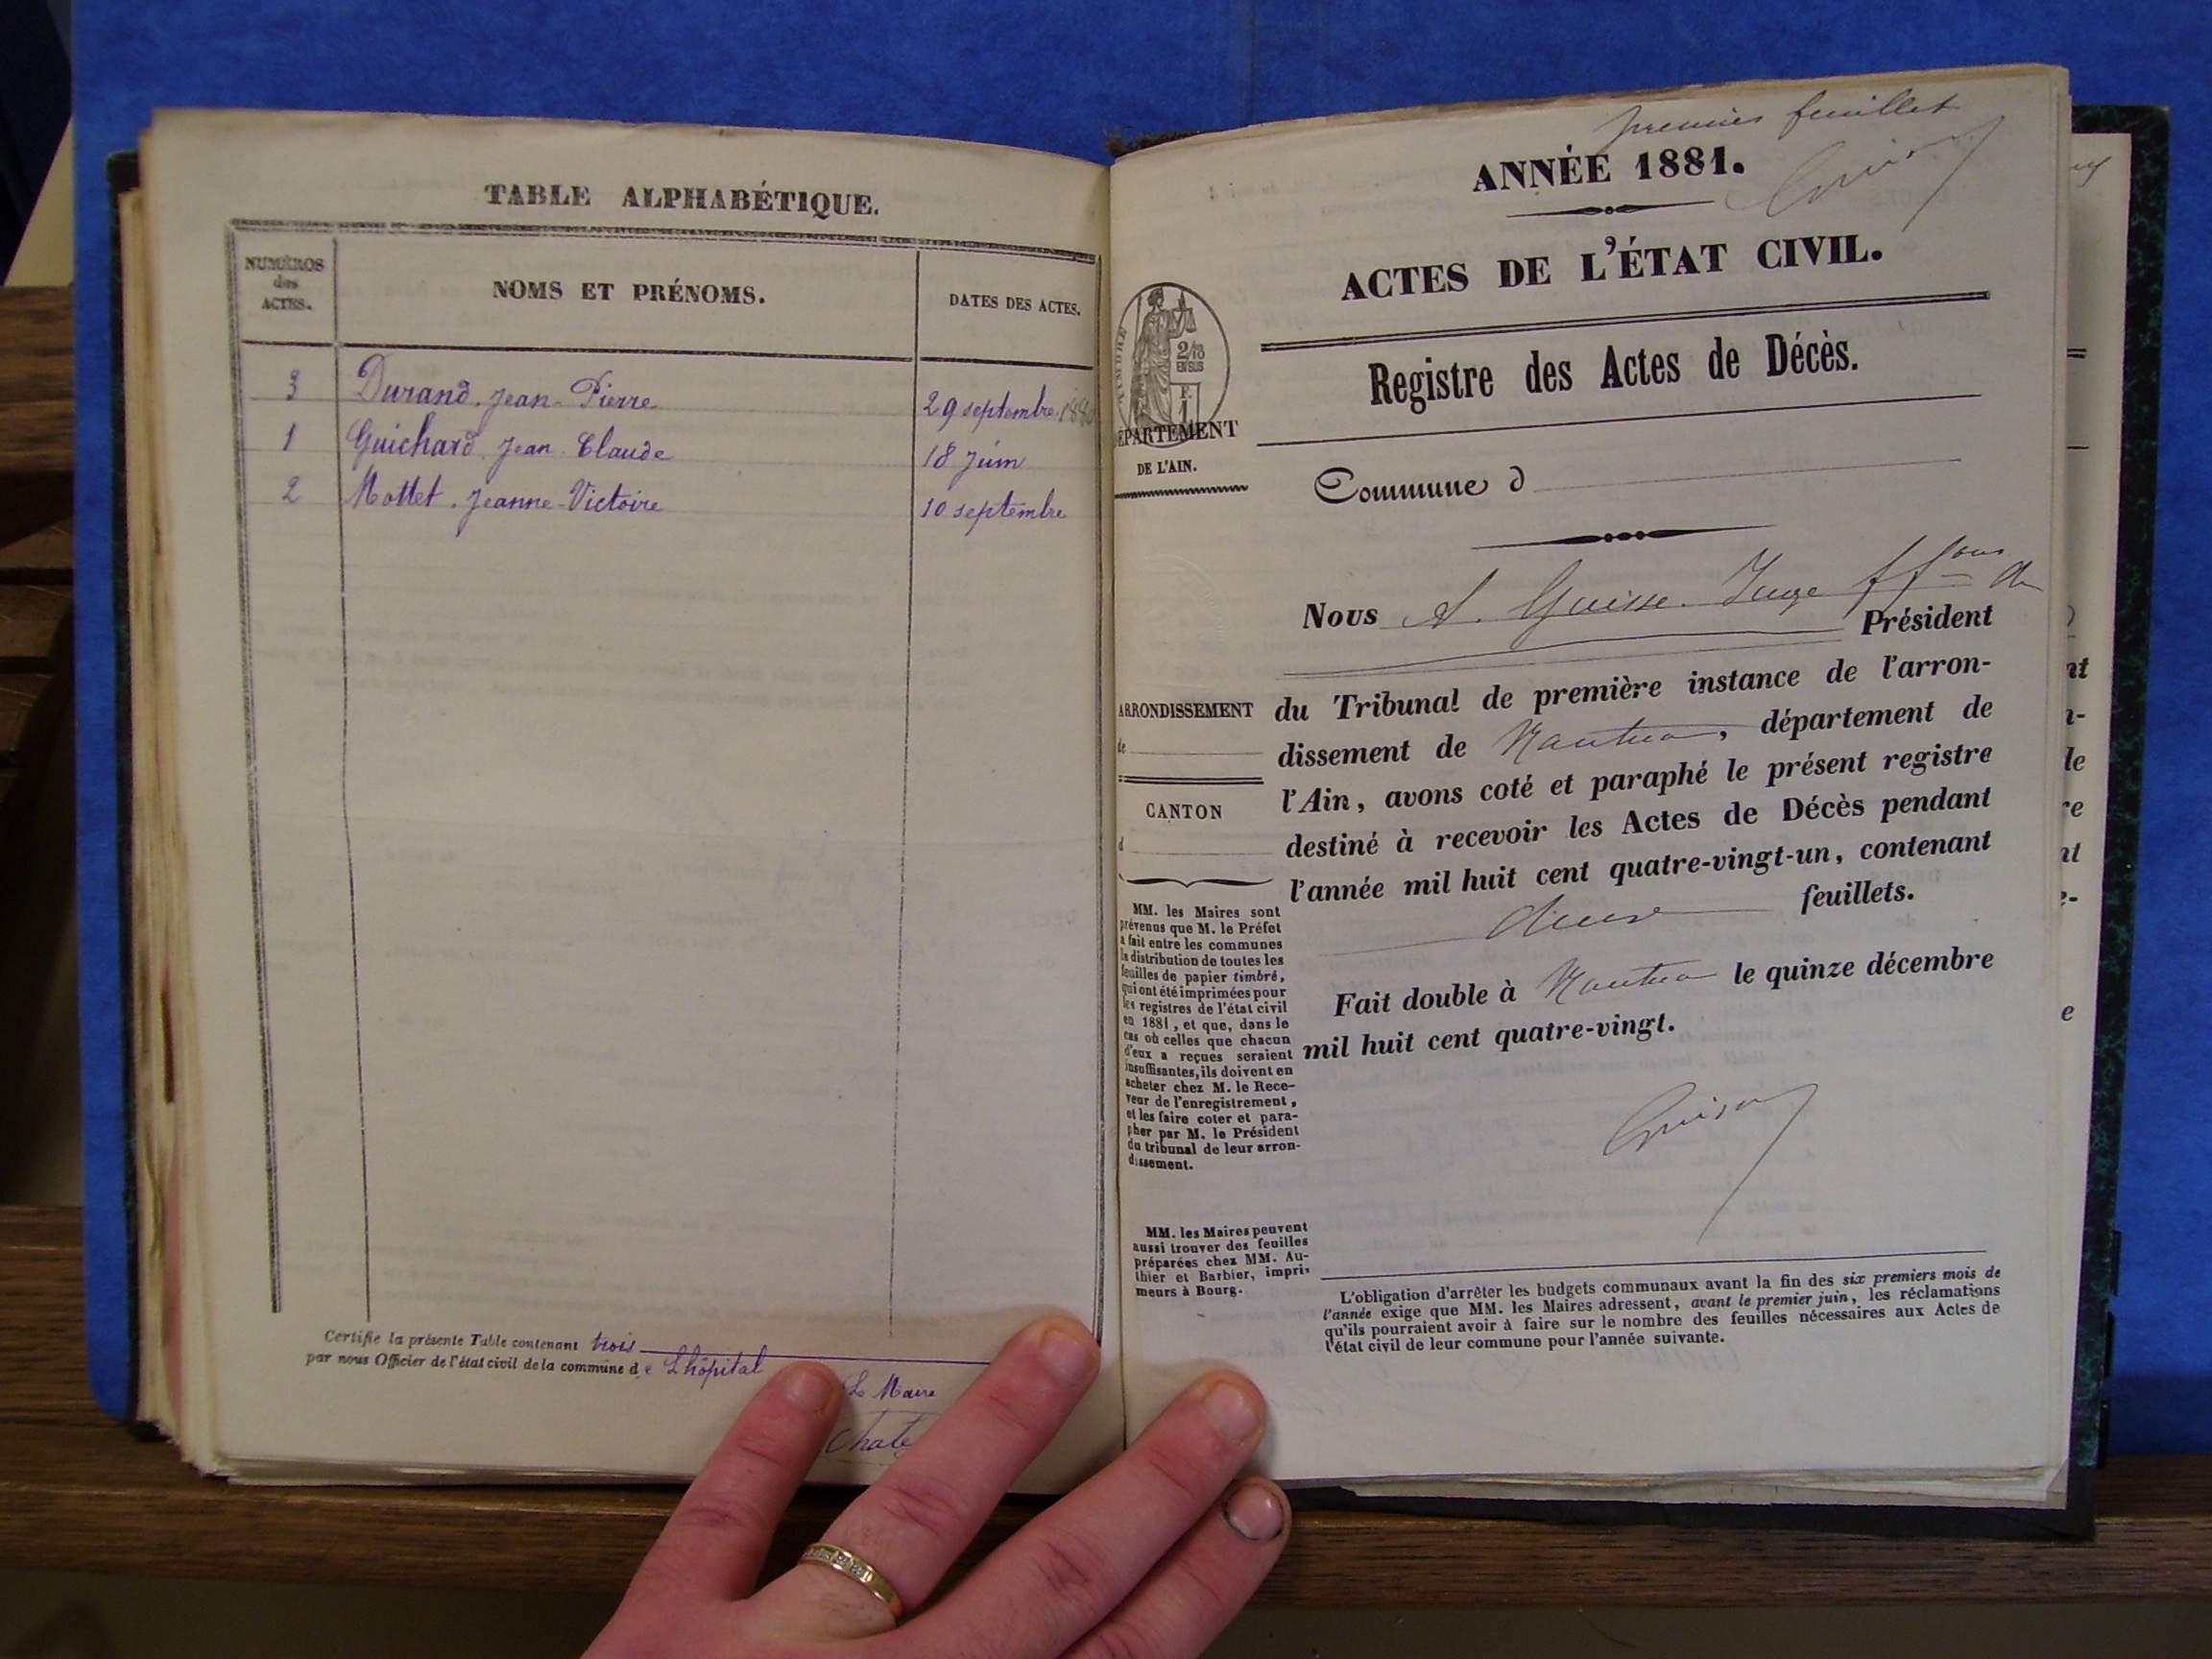 TABLE ALPHABÉTIQUE.
NUMÉROS
des
ACTES.
NOMS ET PRÉNOMS.
DATES DES ACTES.
3 Durand. Jean-Pierre 29 septembre 1880
1 Guichard Jean Claude 18 Juin
2 Mottet. Jeanne-Victoire 10 septembre
Certifié la présente Table contenant trois
par nous Officier de l'état civil de la commune de Lhôpital
Le Maire
premier feuillet
ANNÉE 1881.
ACTES DE L'ÉTAT CIVIL.
TIMBRE
2/10
EN SUS
Registre des Actes de Décès.
DÉPARTEMENT
DE L'AIN.
Commune d
Nous A. Guisse. Juge ff ons de
Président
du Tribunal de première instance de l'arron-
dissement de Nantua, département de
l'Ain, avons coté et paraphé le présent registre
destiné à recevoir les Actes de Décès pendant
l'année mil huit cent quatre-vingt-un, contenant
feuillets.
Fait double à Nantua le quinze décembre
mil huit cent quatre-vingt.
ARRONDISSEMENT
de
CANTON
d
MM. les Maires sont
prévenus que M. le Préfet
a fait entre les communes
la distribution de toutes les
feuilles de papier timbré,
qui ont été imprimées pour
les registres de l'état civil
en 1881, et que, dans le
cas où celles que chacun
d'eux a reçues seraient
insuffisantes, ils doivent en
acheter chez M. le Rece-
veur de l'enregistrement,
et les faire coter et para-
pher par M. le Président
du tribunal de leur arron-
dissement.
MM. les Maires peuvent
aussi trouver des feuilles
préparées chez MM. Au-
thier et Barbier, impri-
meurs à Bourg.
L'obligation d'arrêter les budgets communaux avant la fin des six premiers mois de
l'année exige que MM. les Maires adressent, avant le premier juin, les réclamations
qu'ils pourraient avoir à faire sur le nombre des feuilles nécessaires aux Actes de
l'état civil de leur commune pour l'année suivante.